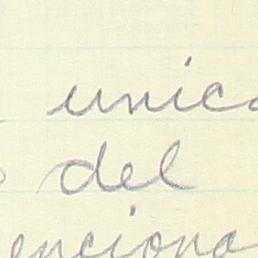 unica
del
enciona